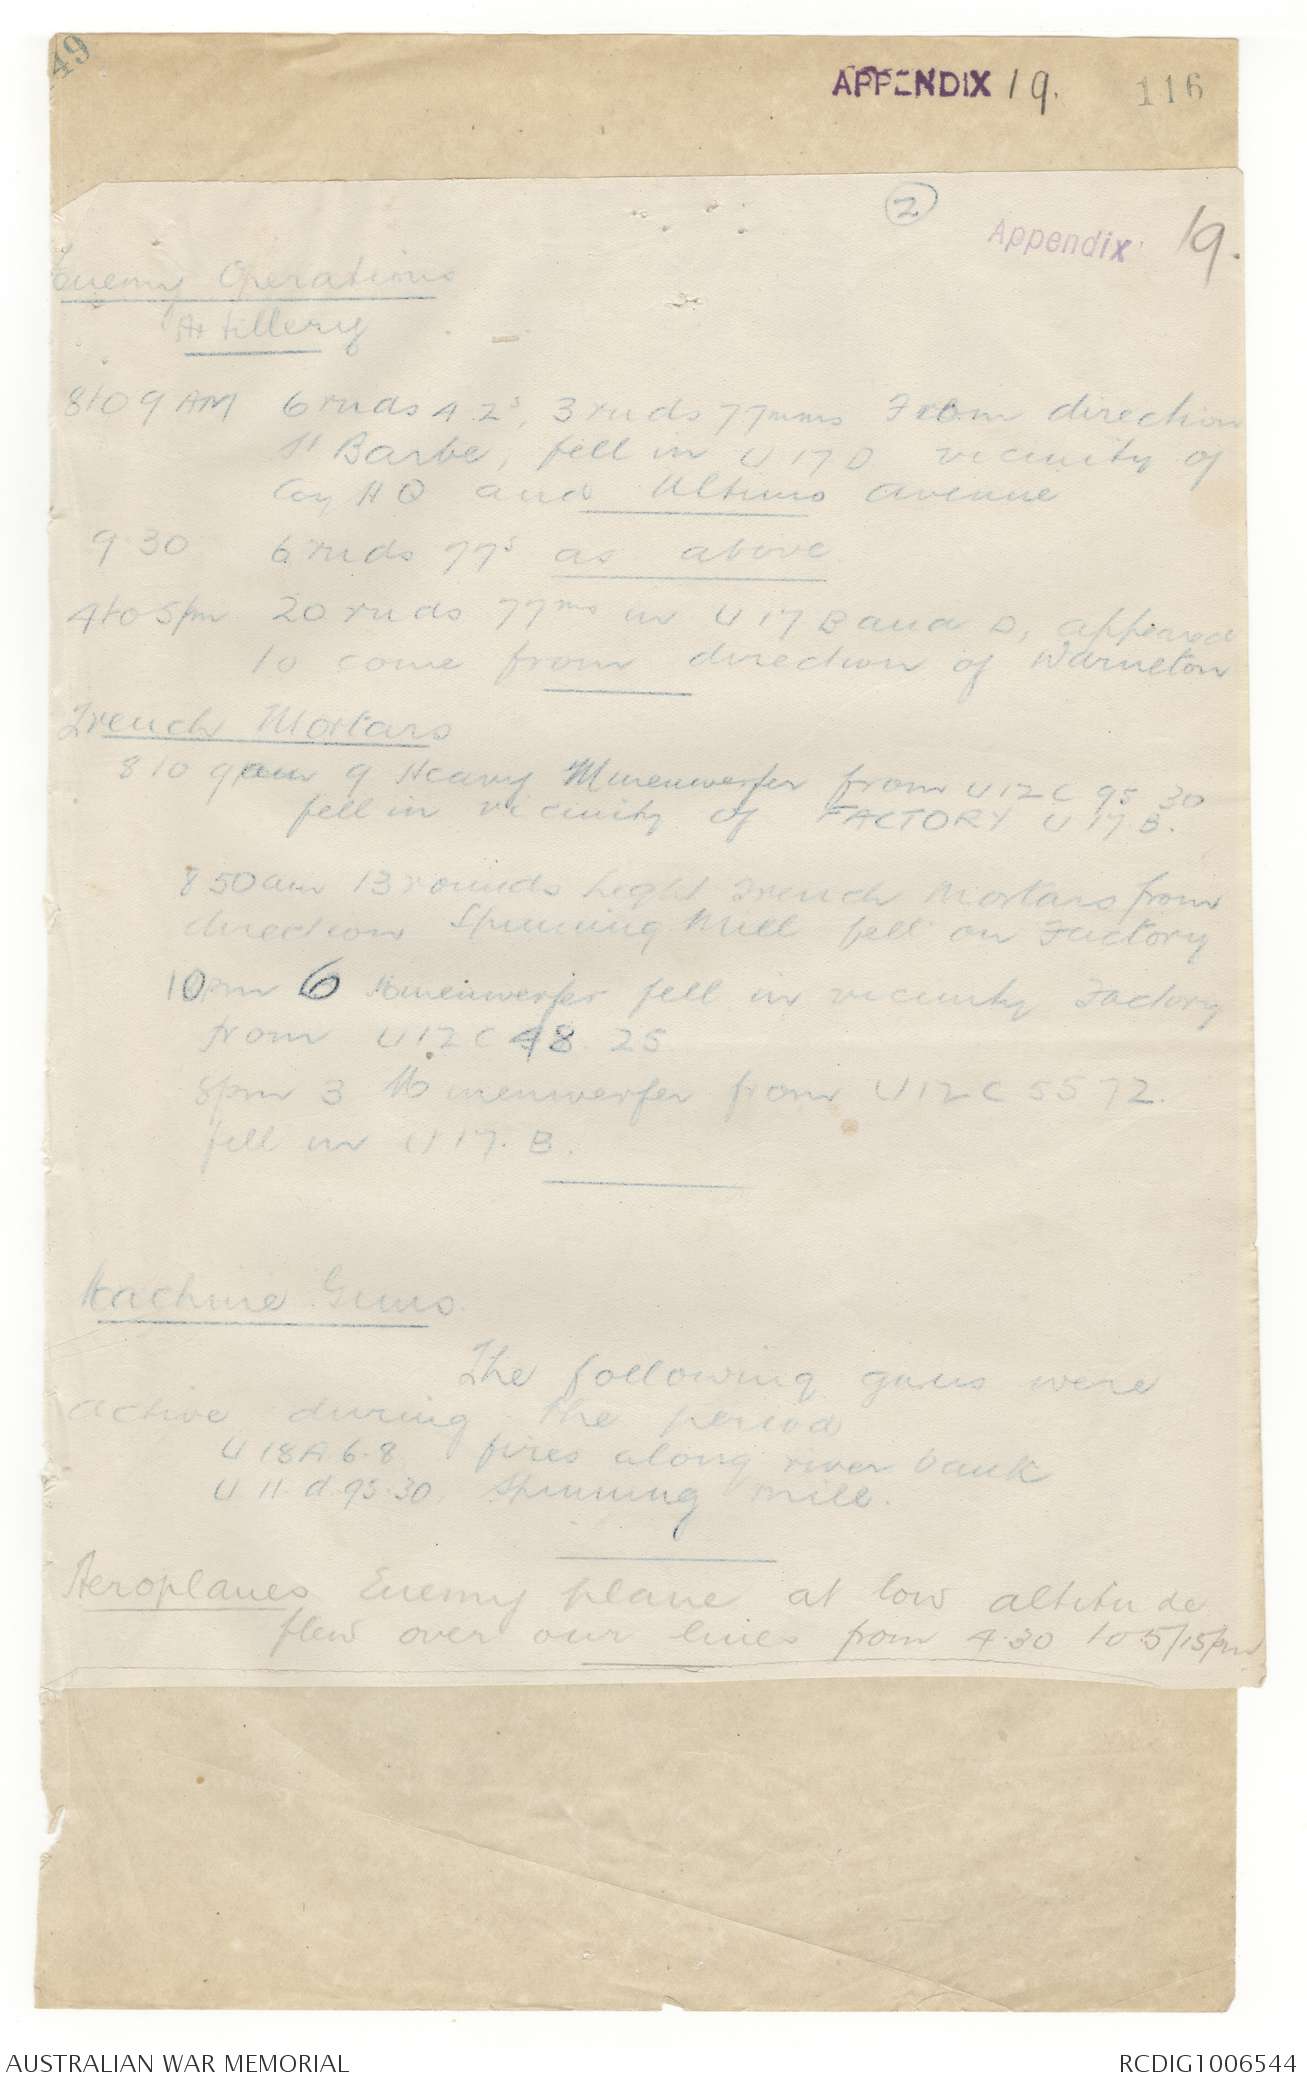 49
APPENDIX 19.
116
2
Appendix 19.
Enemy Operations
Artillery
8 to 9 AM 6 rnds 4.2s, 3 rnds 77mms From direction
St Barbe, fell in U 17 D vicinity of
Coy HQ and Ultimo avenue
9.30 6 rnds 77s as above
4 to 5pm 20 rnds 77ms in U 17 B and D, appeared
to come from direction of Warneton
Trench Mortars
8 to 9am 9 Heavy Minenwerfer from U12C 95 30
fell in vicinity of FACTORY U 17.B.
8 50am 13 rounds Light Trench Mortars from
direction Spinning Mill fell on Factory
10pm 6 Minenwerfer fell in vicinity Factory
from U12C 48.25
8pm 3 Minenwerfer from U12C 55 72.
fell in U 17. B.
Machine Guns.
The following guns were
active during the period
U 18A 6.8 fires along river bank
U 11.d.95.30. Spinning mill.
Aeroplanes Enemy plane at low altitude
flew over our lines from 4.30 to 5/15pm
AUSTRALIAN WAR MEMORIAL
RCDIG1006544